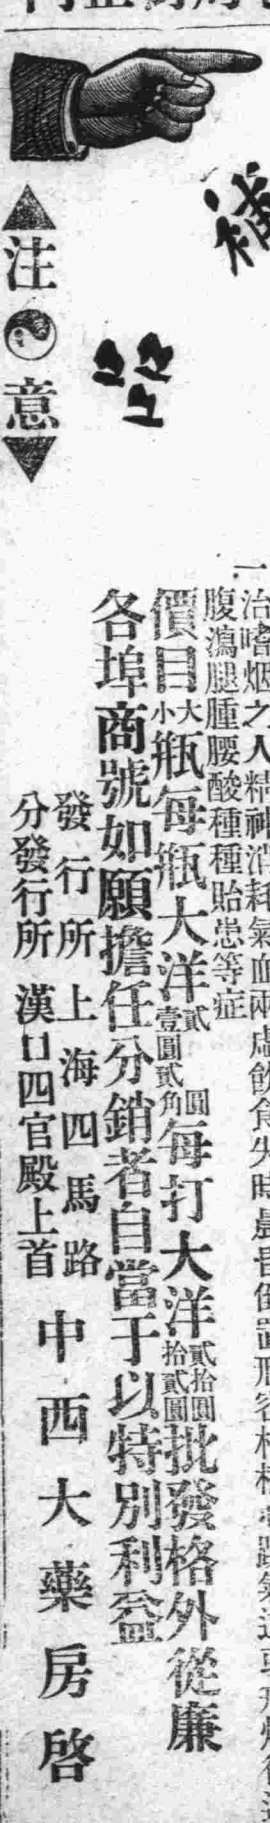 一治嗜烟之人精神消耗氣血兩虛飲食失時晨昏倒置形容枯槁
腹瀉腿腫腰酸種種貽患等症
價目大小瓶每瓶大洋貳圓壹圓貳角每打大洋貳拾圓拾貳圓批發格外從廉
各埠商號如願擔任分銷者自當予以特別利益
發行所上海四馬路
分發行所漢口四官殿上首
中西大藥房啓
注意
補